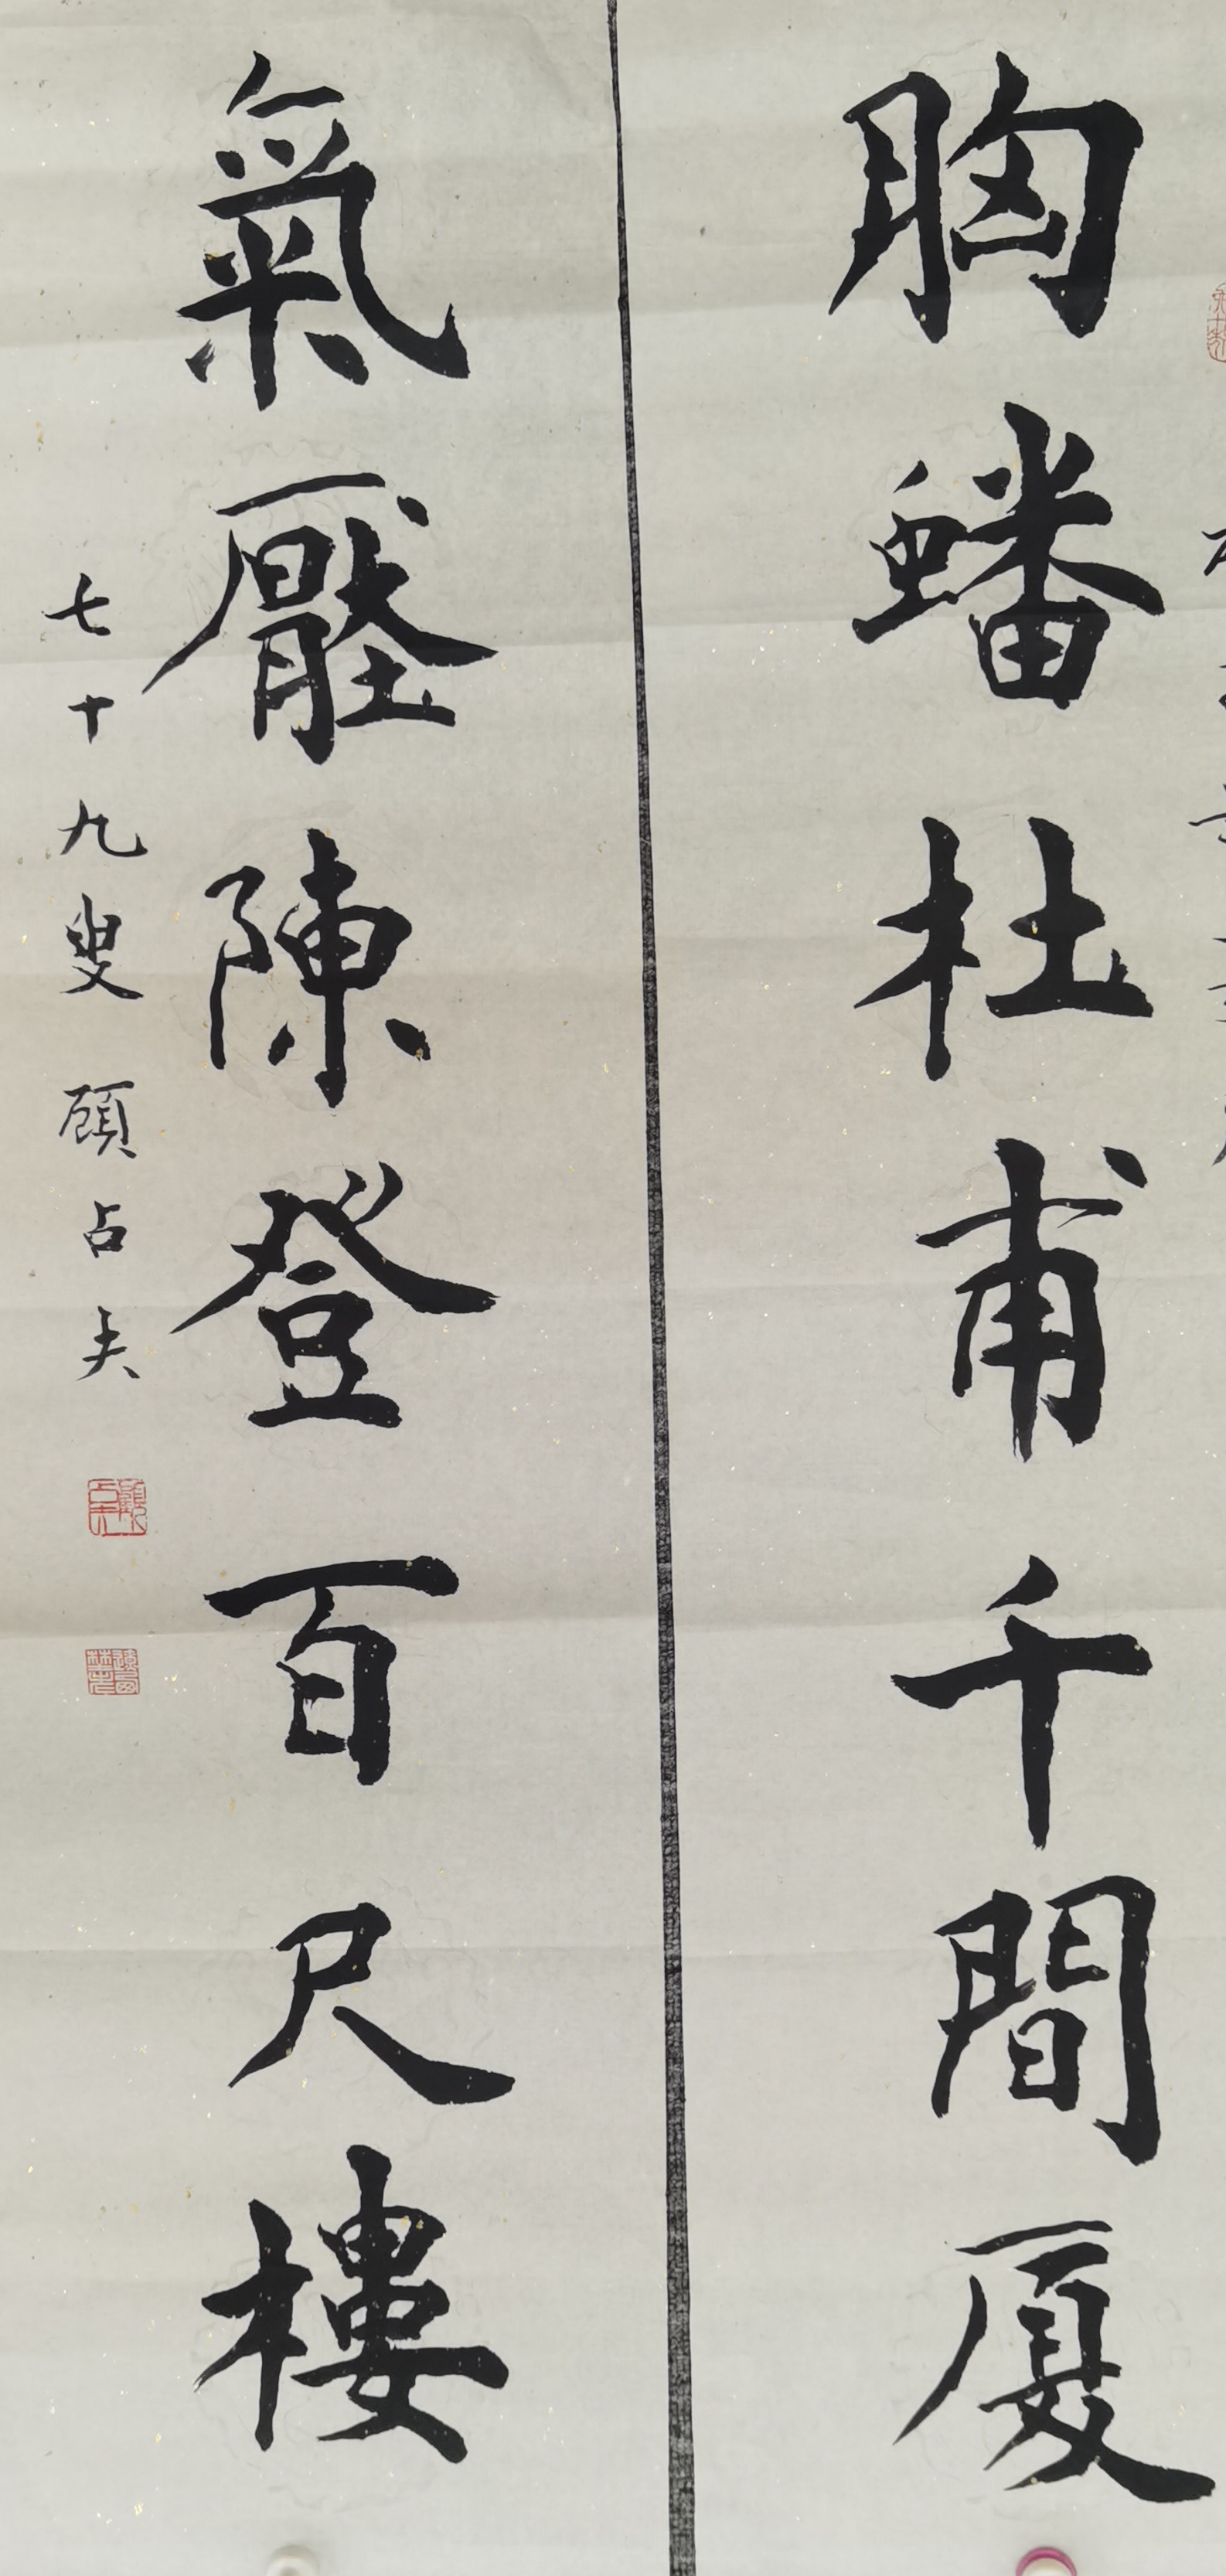 胸蟠杜甫千間厦
氣壓陳登百尺樓
七十九叟顧占夫